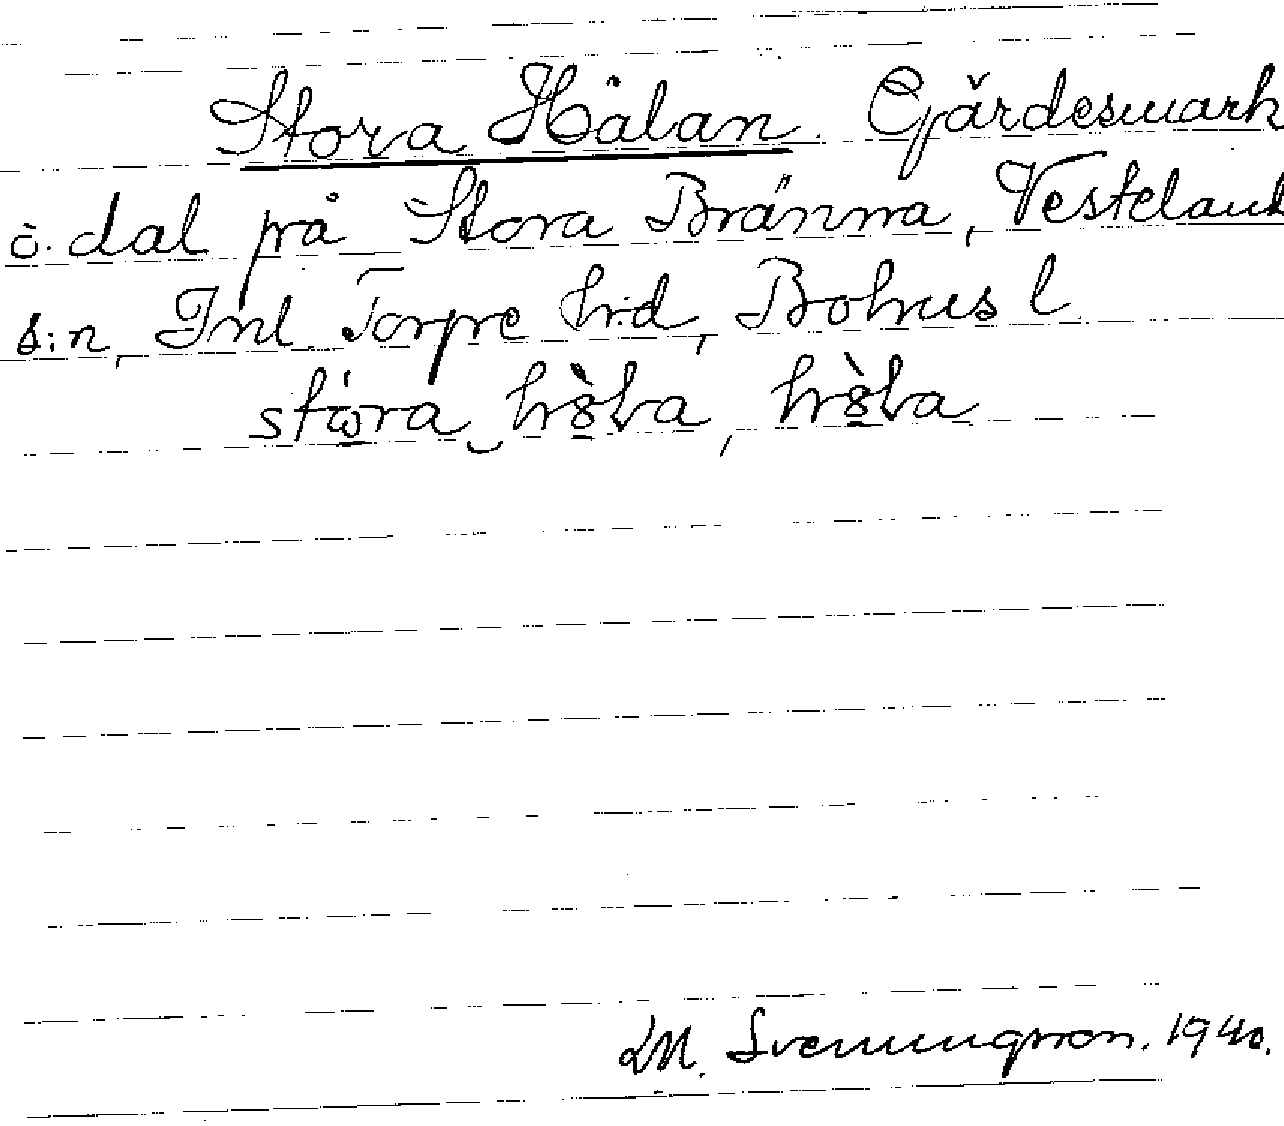 Stora Hälan. Gärdesmark
o. dal på Stora Bränna, Vesteland
s:n, Inl. Torpe h:d, Bohus l
M. Svenungsson. 1940.